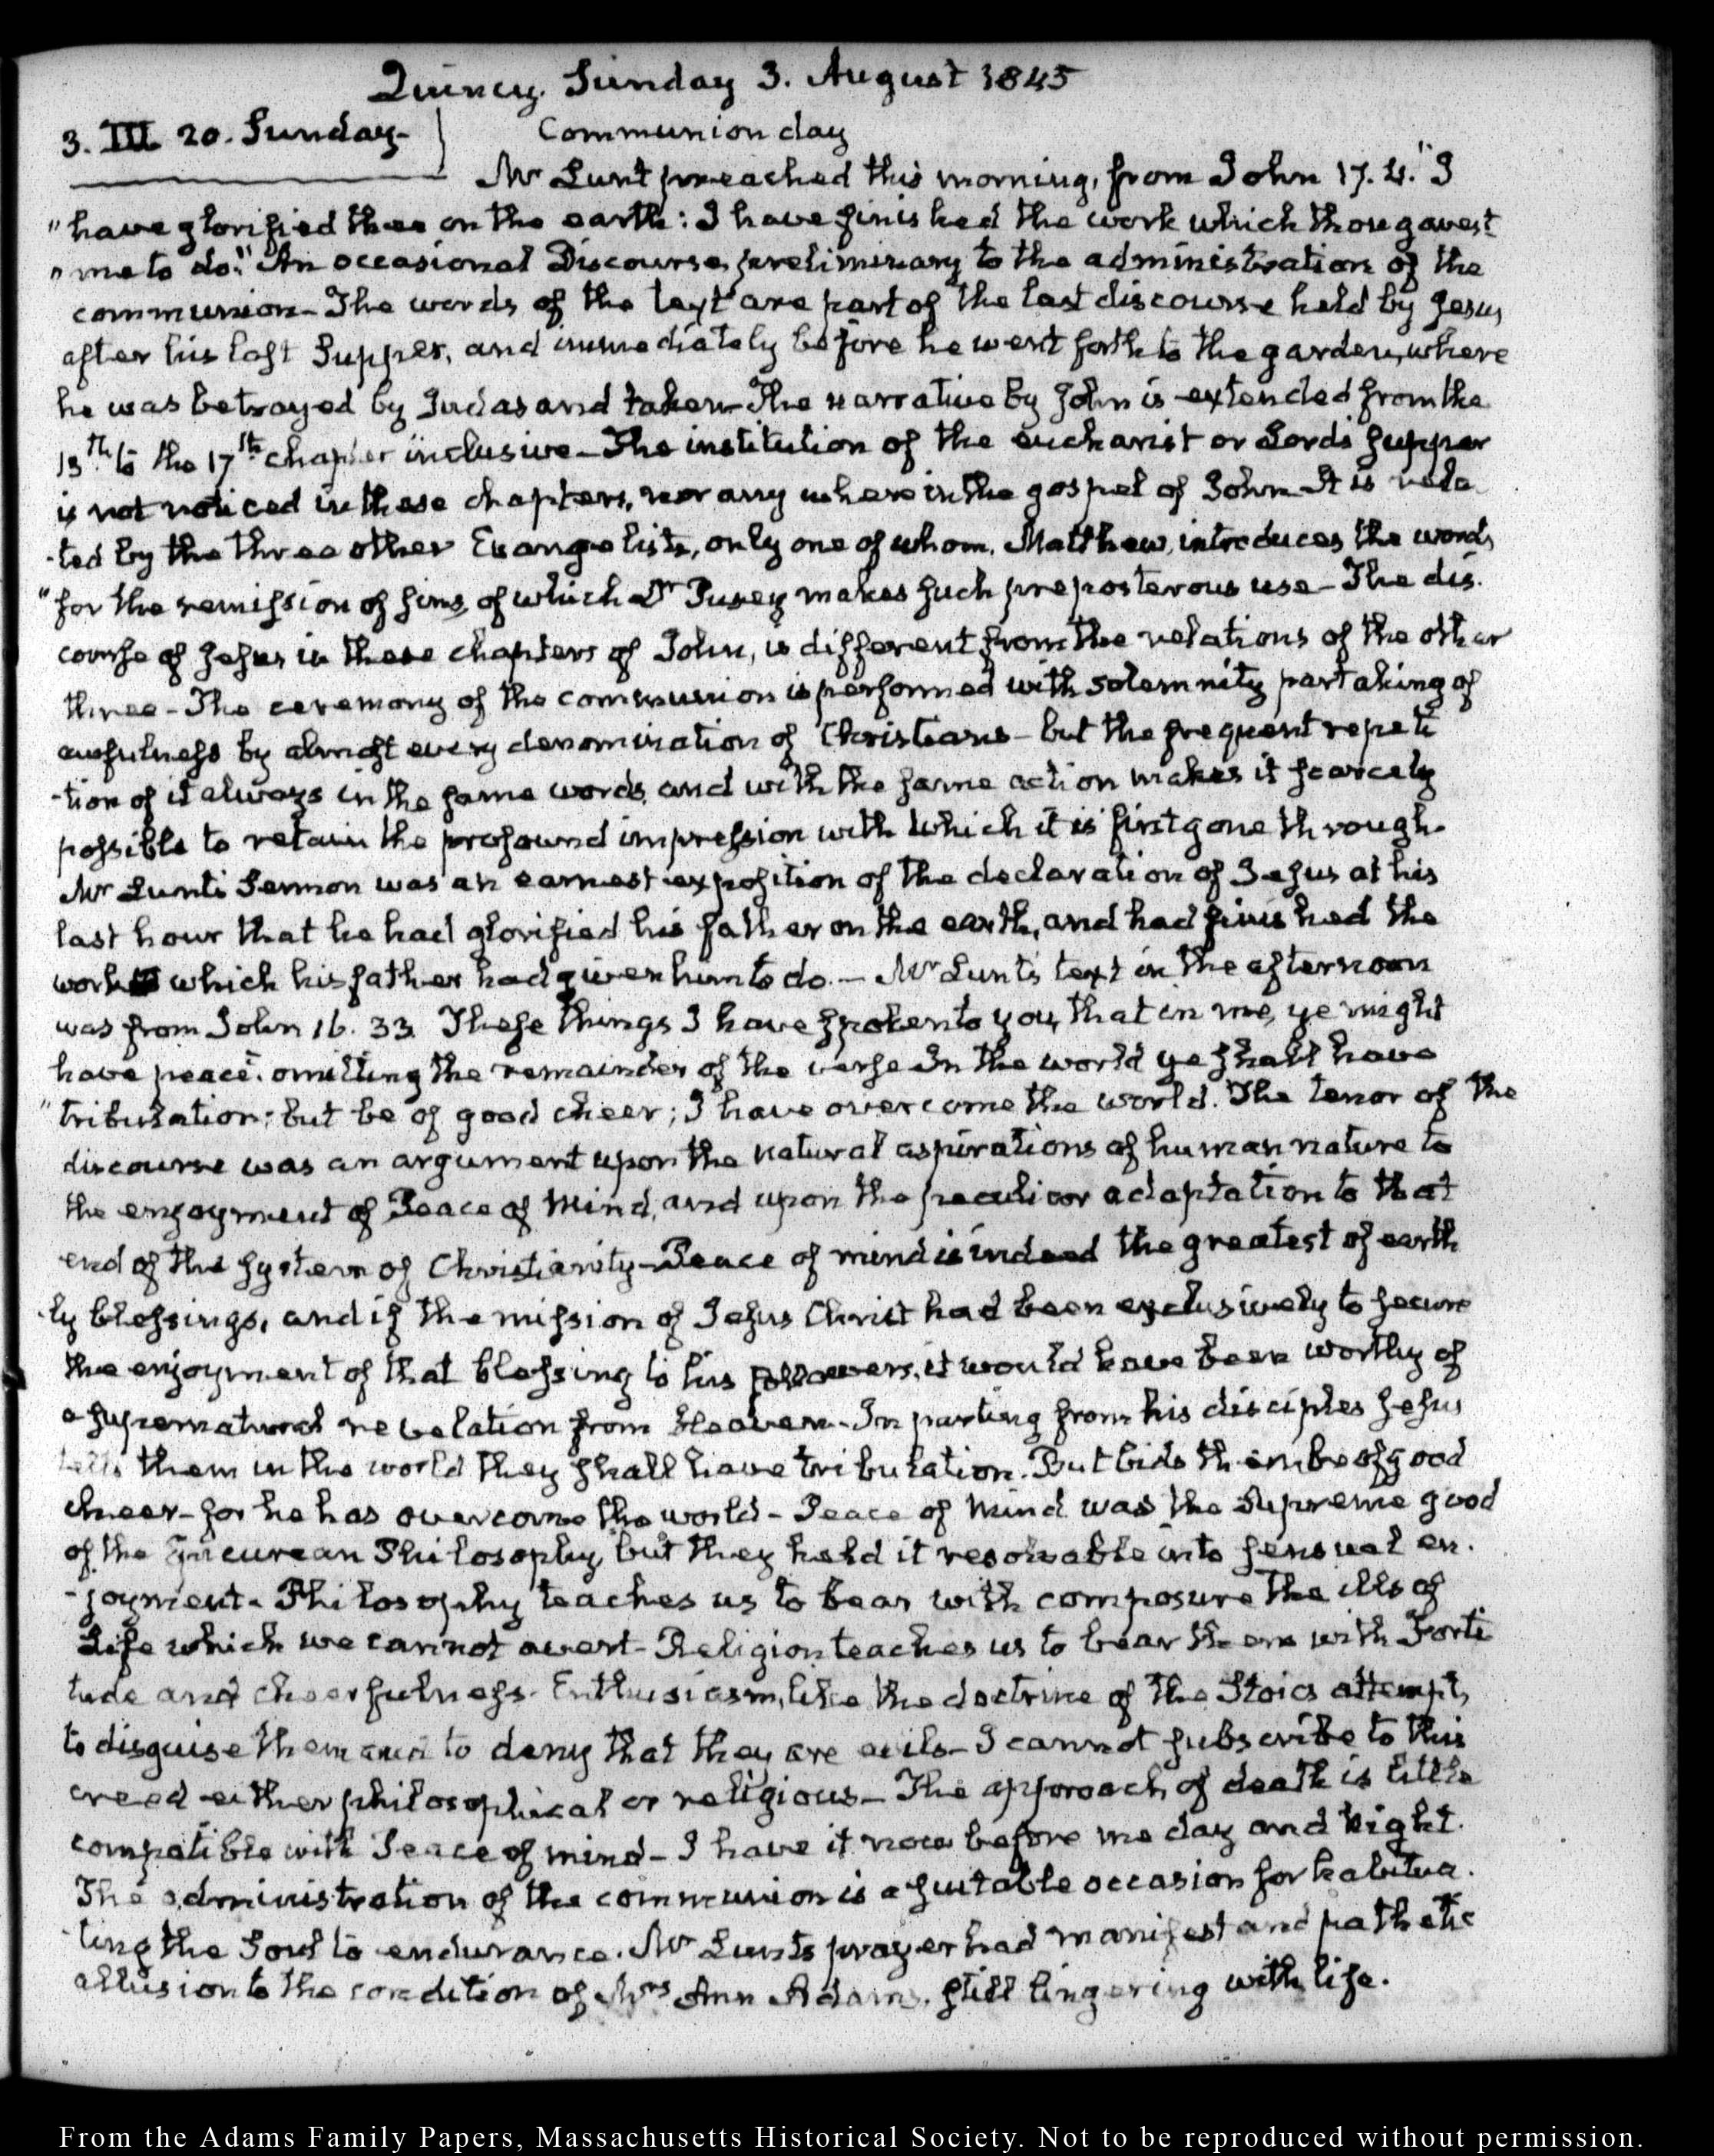 Quincy. Sunday 3. August 1845
3. III. 20. Sunday-
Communion day
Mr Lunt preached this morning, from John 17. 4. "I
"have glorified thee on the earth: I have finished the work which thou gavest
"me to do." An occasional Discourse, preliminary to the administration of the
communion- The words of the text are part of the last discourse held by Jesus
after his last Supper, and immediately before he went forth to the garden, where
he was betrayed by Judas and taken- The narrative by John is extended from the
13th to the 17th chapter inclusive- The institution of the eucharist or Lords Supper
is not noticed in these chapters, nor any where in the gospel of John- It is rela
-ted by the three other Evangelists, only one of whom, Matthew, introduces the words
"for the remission of sins, of which Dr Pusey makes such preposterous use- The dis.
course of Jesus in these chapters of John, is different from the relations of the other
three- The ceremony of the communion is performed with solemnity partaking of
awfulness by almost every denomination of Christians- but the frequent repeti
-tion of it always in the same words, and with the same action makes it scarcely
possible to retain the profound impression with which it is first gone through-
Mr Lunt's Sermon was an earnest exposition of the declaration of Jesus at his
last hour that he had glorified his father on the earth, and had finished the
work which his father had given him to do.- Mr Lunt's text in the afternoon
was from John 16. 33. These things I have spoken to you, that in me, ye might
have peace. omitting the remainder of the verse In the world ye shall have
"tribulation; but be of good cheer; I have overcome the world. The tenor of the
discourse was an argument upon the natural aspirations of human nature to
the enjoyment of Peace of Mind, and upon the peculiar adaptation to that
end of the system of Christianity- Peace of mind is indeed the greatest of earth
-ly blessings, and if the mission of Jesus Christ had been exclusively to secure
the enjoyment of that blessing to his followers, it would have been worthy of
a supernatural revelation from Heaven- In parting from his disciples Jesus
tells them in the world they shall have tribulation. But bids them be of good
cheer- for he has overcome the world- Peace of Mind was the Supreme good
of the Epicurean Philosophy, but they held it resolvable into sensual en.
-joyment- Philosophy teaches us to bear with composure the ills of
Life which we cannot avert- Religion teaches us to bear them with Forti
tude and cheerfulness. Enthusiasm, like the doctrine of the Stoics attempts
to disguise them and to deny that they are evils- I cannot subscribe to this
creed either philosophical or religious- The approach of death is little
compatible with Peace of mind- I have it now before me day and night.
The administration of the communion is a suitable occasion for habitua.
-ting the Soul to endurance. Mr Lunt's prayer had manifest and pathetic
allusion to the condition of Mrs Ann Adams, still lingering with life.
From the Adams Family Papers, Massachusetts Historical Society. Not to be reproduced without permission.